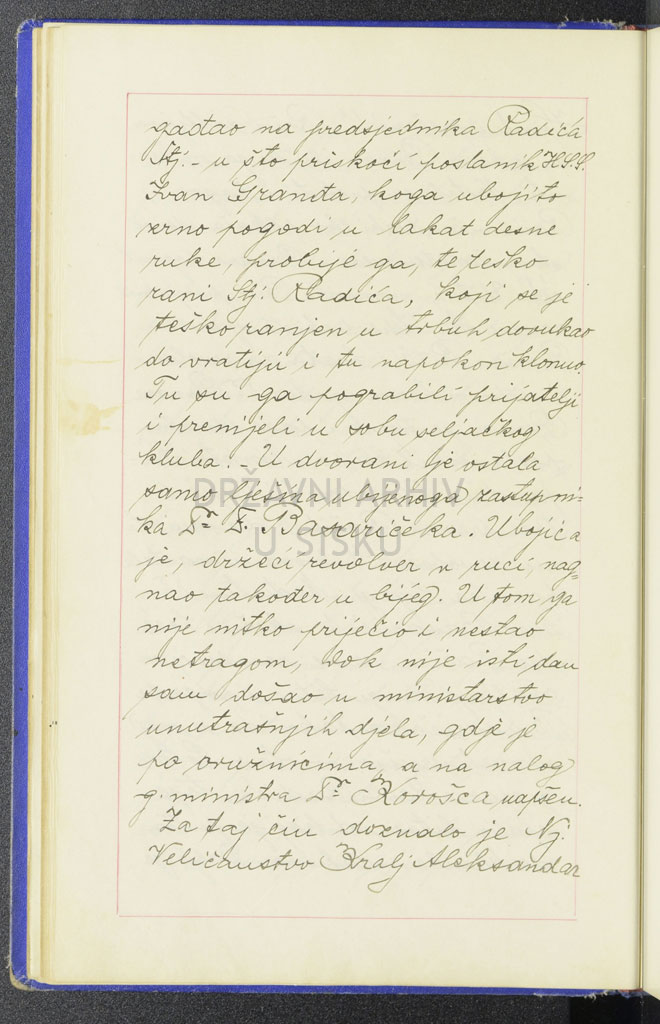 gađao na predsjednika Radića
Stj. - u što priskoči poslanik H.S.S.
Ivan Granđa, koga ubojito
zrno pogodi u lakat desne
ruke, probije ga, te teško
rani Stj. Radića, koji se je
teško ranjen u trbuh dovukao
do vratiju i tu napokon klonuo.
Tu su ga pograbili prijatelji
i prenijeli u sobu seljačkog
kluba. - U dvorani je ostala
samo lješina ubijenoga zastupni=
ka Dr. Gj. Basaričeka. Ubojica
je, držeći revolver u ruci, nag=
nao također u bijeg. U tom ga
nije nitko priječio i nestao
netragom, dok nije isti dan
sam došao u ministarstvo
unutrašnjih djela, gdje je
po oružnicima, a na nalog
g. ministra Dr. Korošca uapšen.
Za taj čin doznalo je Nj.
Veličanstvo Kralj Aleksandar
DRŽAVNI ARHIV
U SISKU